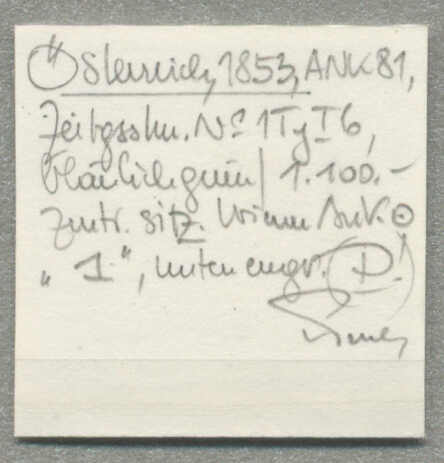 Österreich, 1853, ANK 81,
Zeitgsstm. No 1 Ty I b,
bläulichgrün / 1.100.-
zentr. sitz.
„1.", unten engr. (D!)